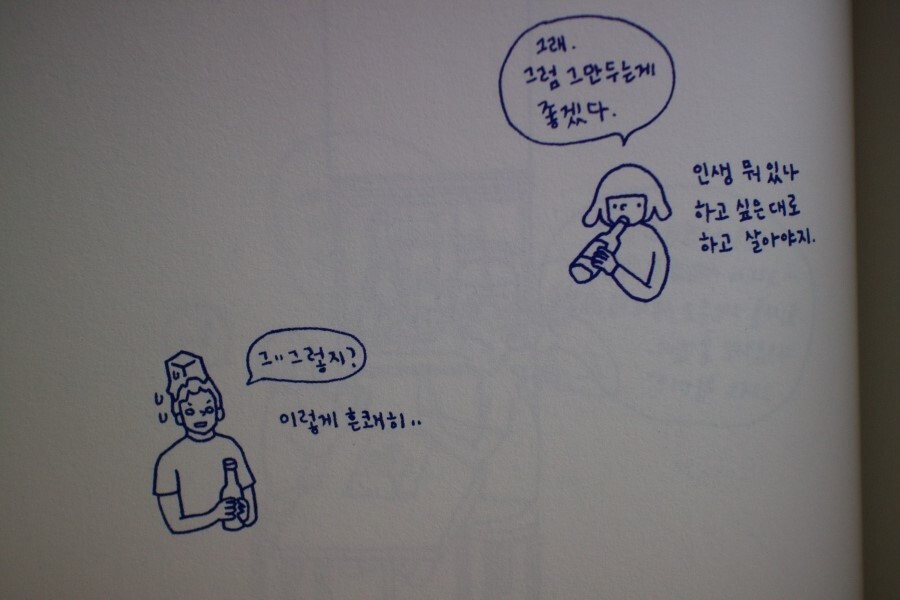 그래.
그럼 그만두는게
좋겠다.
인생 뭐있나
하고 싶은대로
하고 살아야지.
그.. 그렇지?
이렇게 흔쾌히..